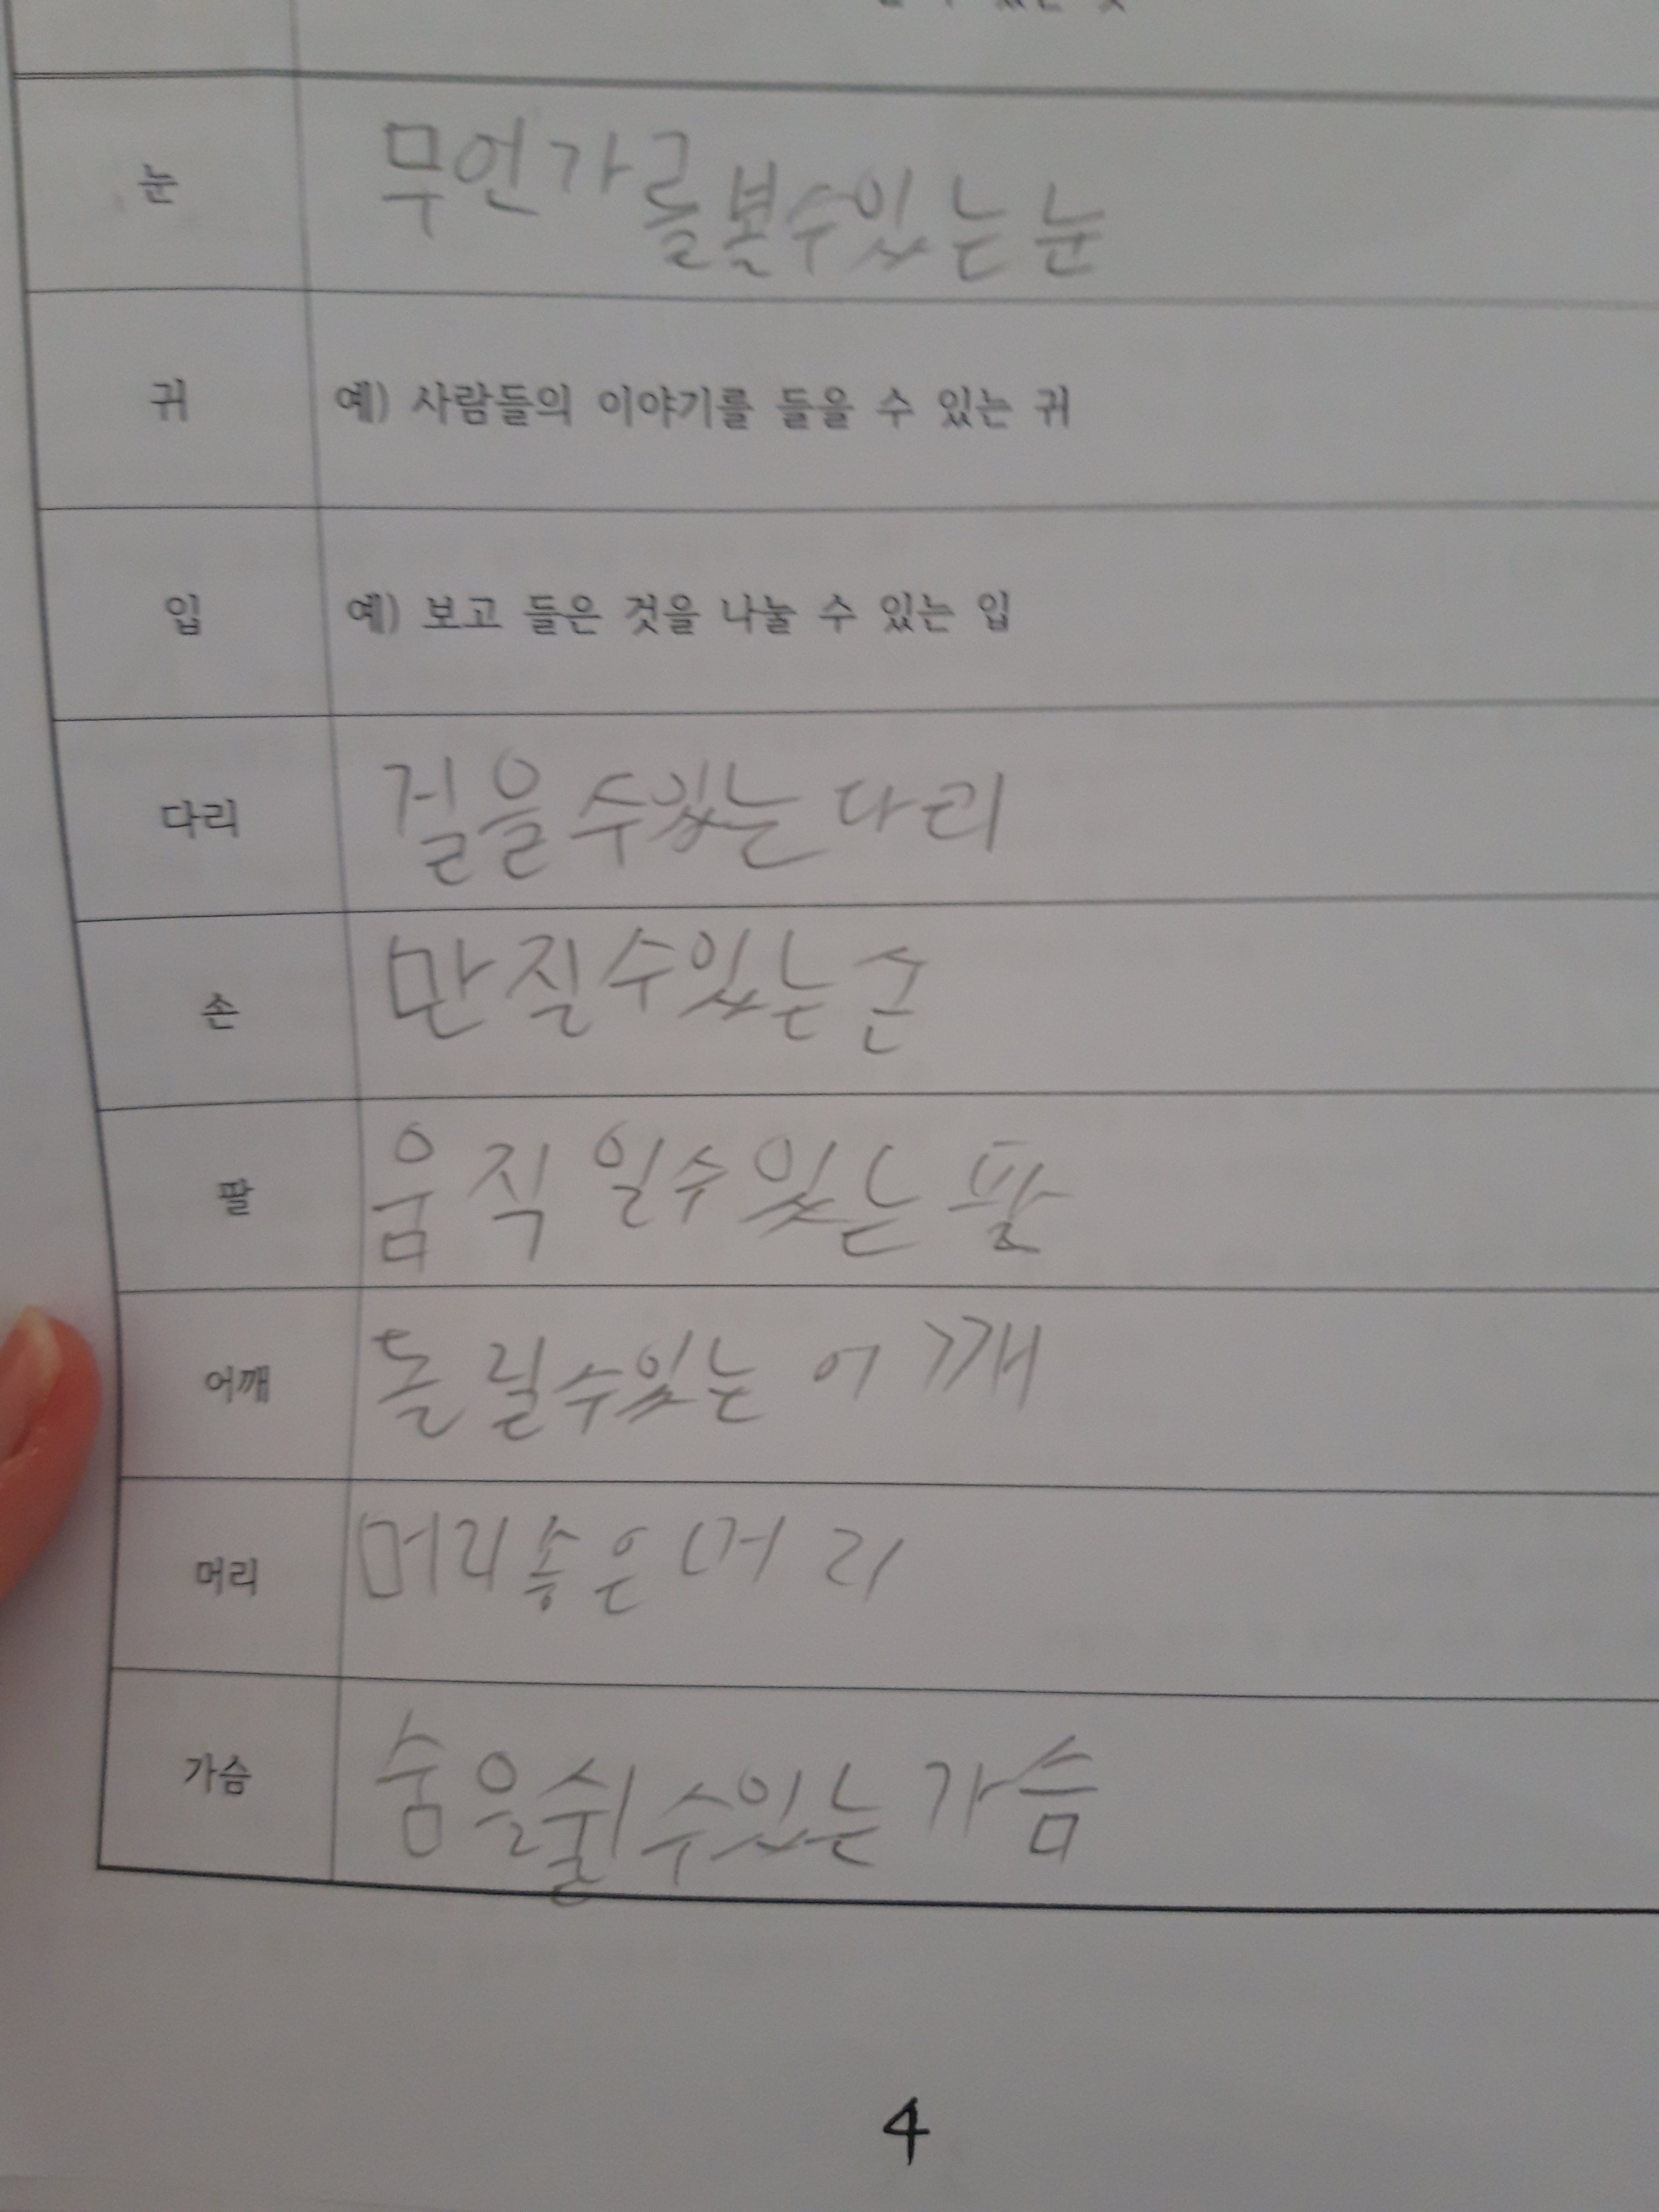 눈 무언가를볼수있는눈
귀 예) 사람들의 이야기를 들을 수 있는 귀
입 예) 보고 들은 것을 나눌 수 있는 입
다리 걸을 수있는 다리
손 만질수있는 손
팔 움직일수있는 팔
어깨 돌릴수있는 어깨
머리 머리좋은머리
가슴 숨을쉴수있는 가슴
4